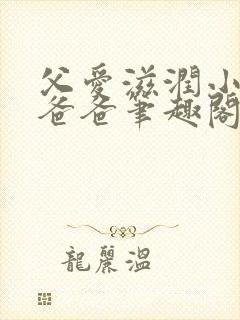 父愛滋潤小
爸爸筆趣閣
龍麗溫